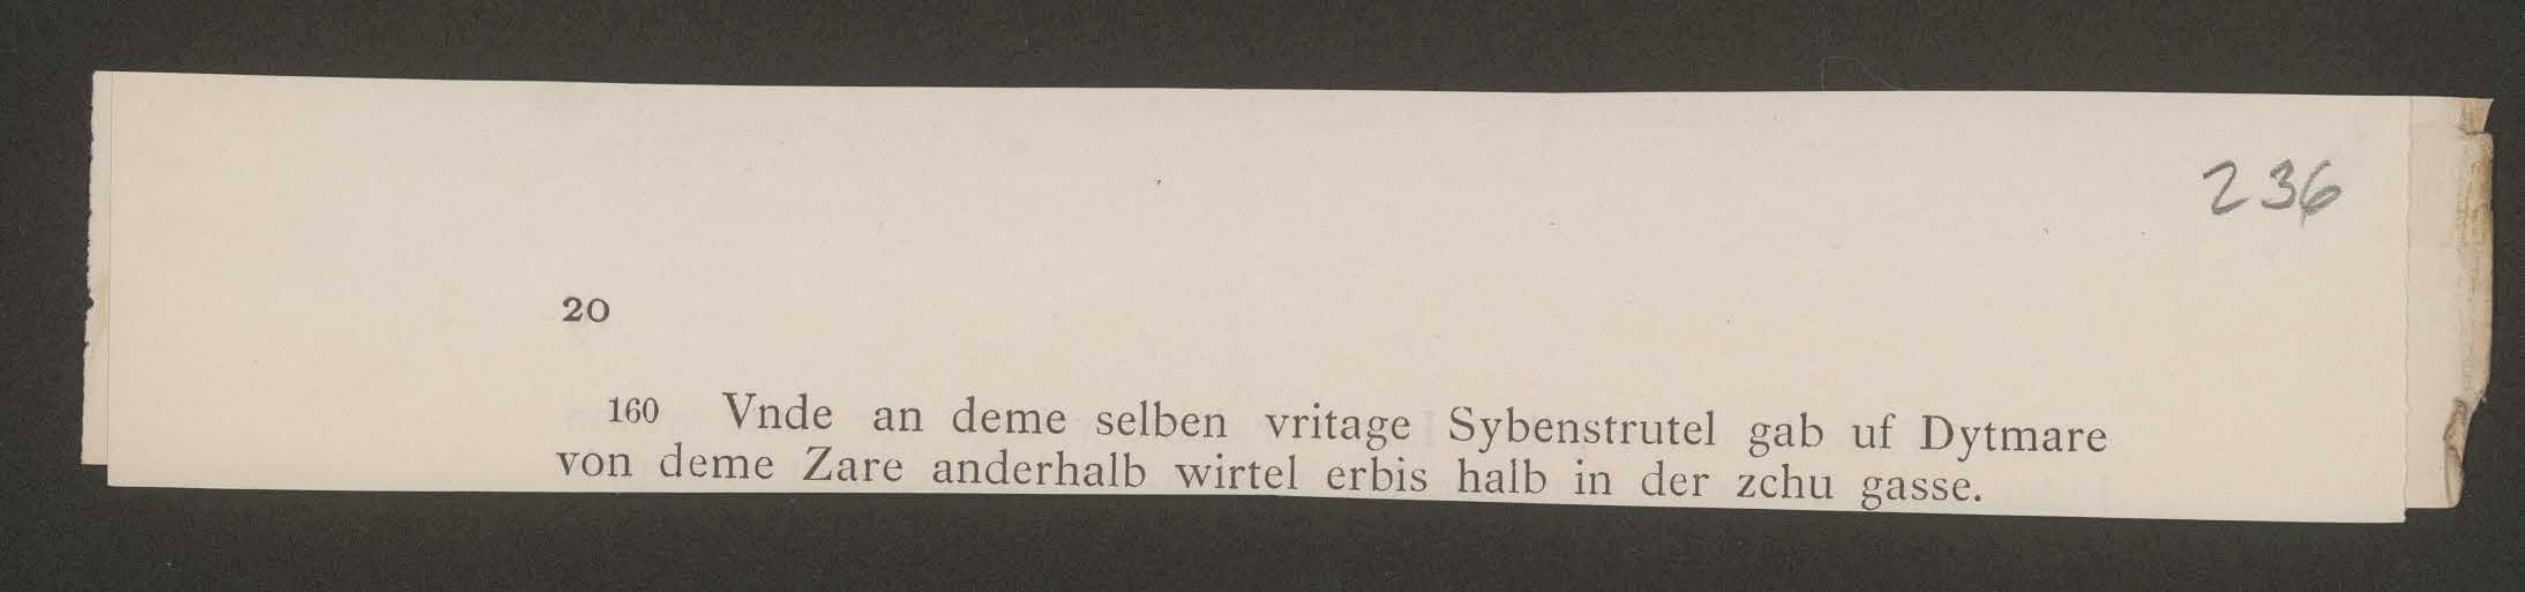 236
20
160 Vnde an deme selben vritage Sybenstrutel gab uf Dytmare
von deme Zare anderhalb wirtel erbis halb in der zchu gasse.